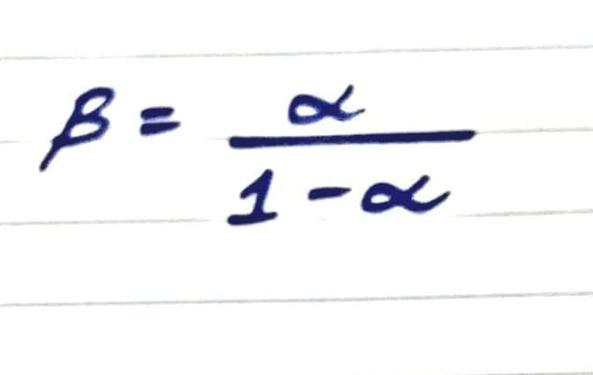 β = α / (1 - α)